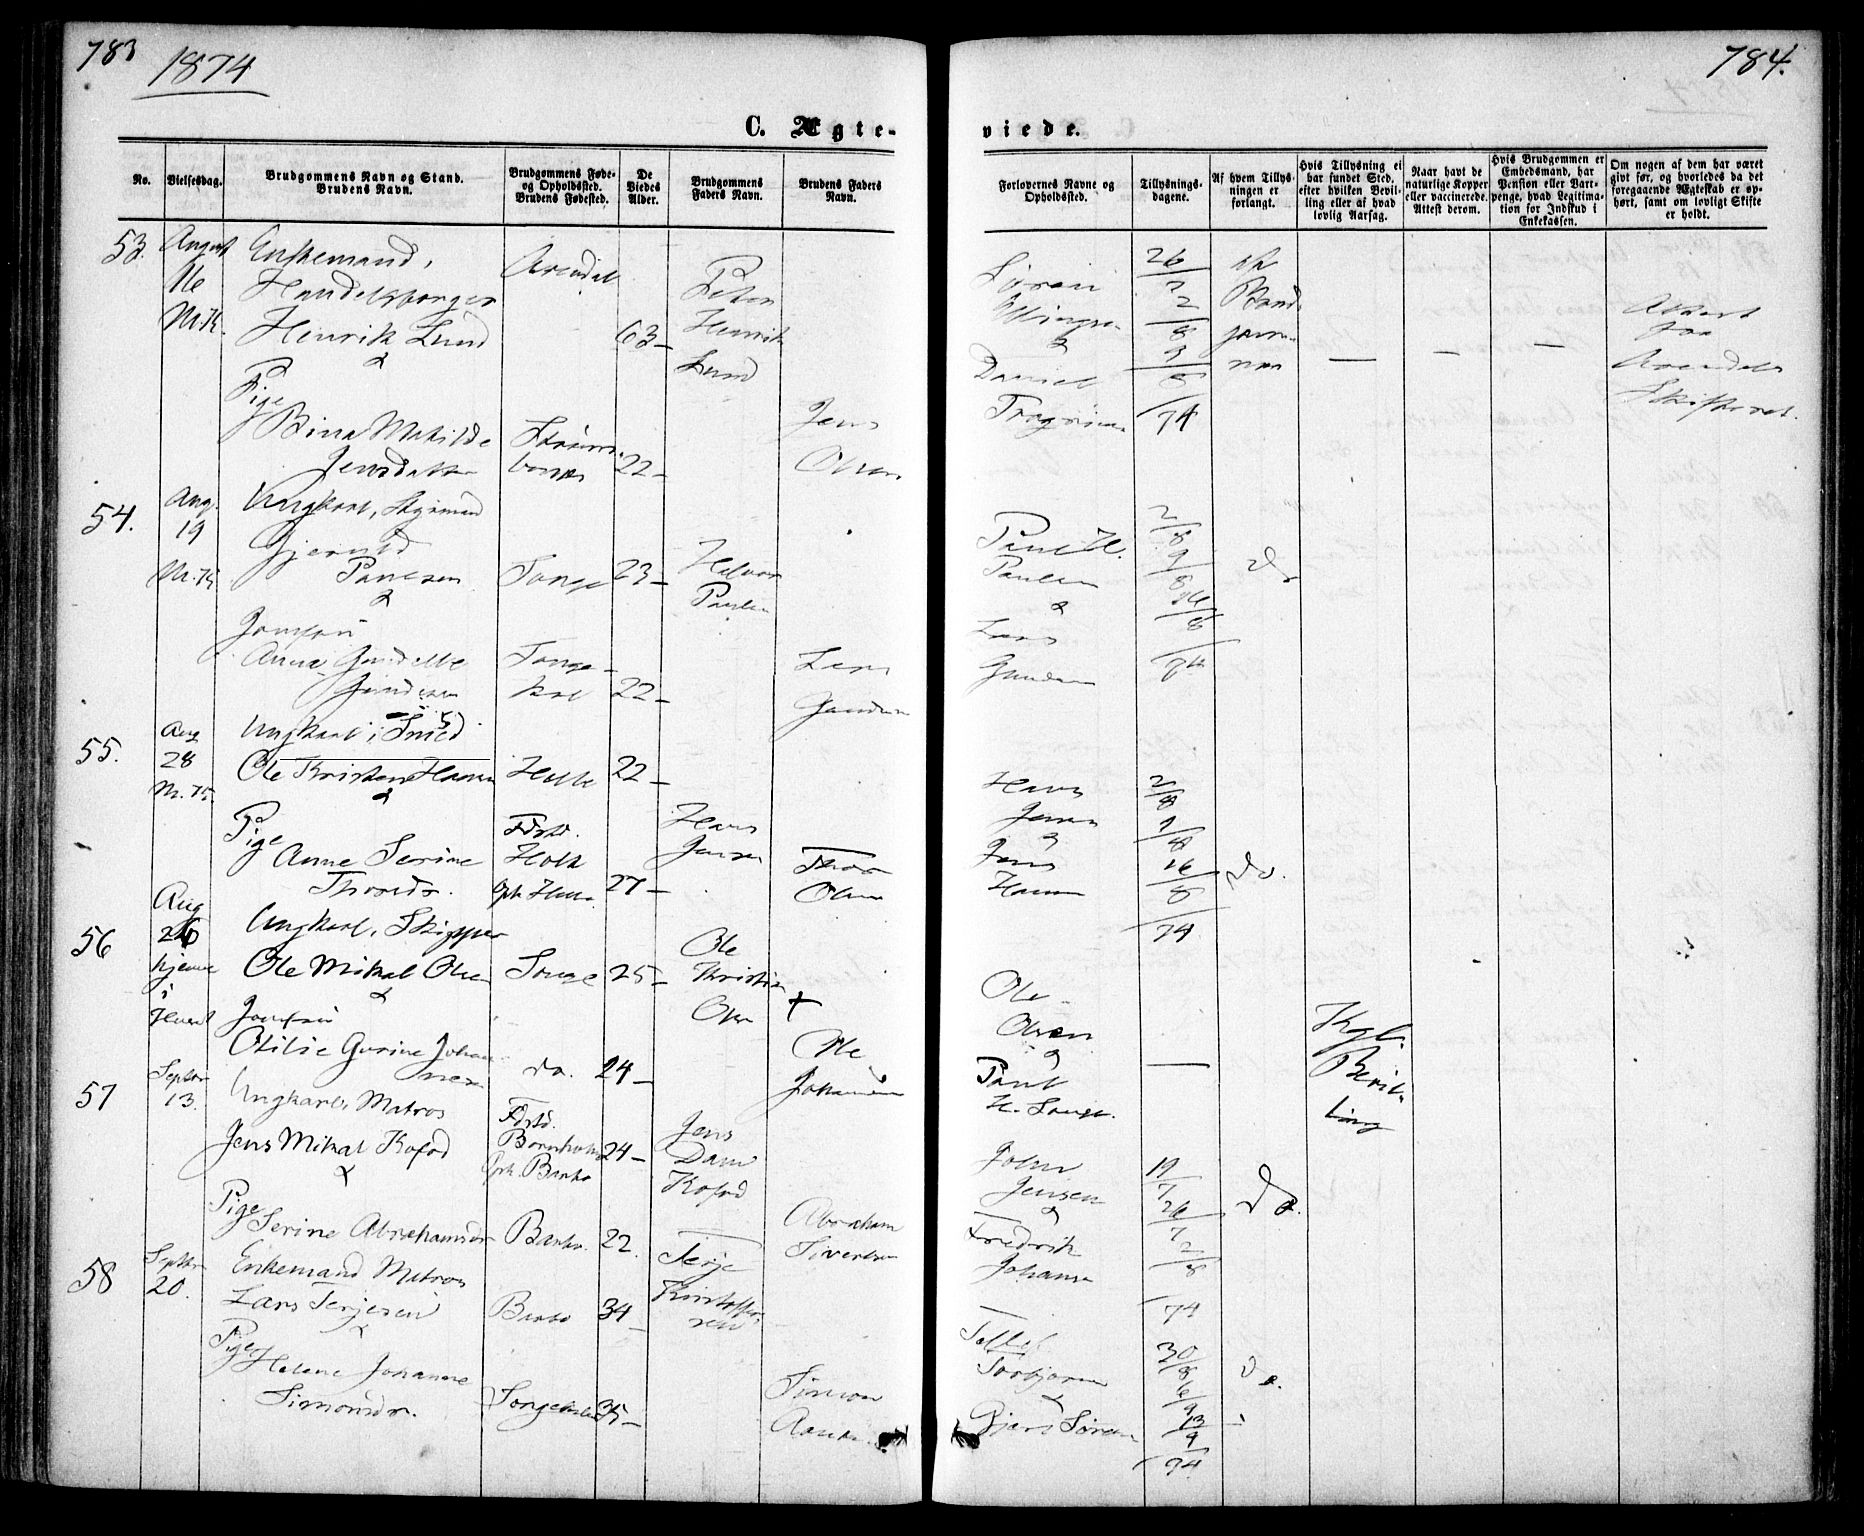 783
1874
C. Ægte-
No.
Vielsesdag.
Brudgommens Navn og Stand.
Brudens Navn.
Brudgommens Føde-
og Opholdssted.
Brudens Fødested.
De
Viedes
Alder.
Brudgommens
Faders Navn.
Brudens Faders
Navn.
53.
August
16
M.K.
Enkemand,
Henrik Lund
&
Arendal
63 –
Peter
Henrik
Lund
Pige
Bina Matilde
Jensdatter
22 –
Jens
Olsen
54.
Aug.
19
M.K.
Ungkarl, Styrmand
Paulsen
&
Songe
23 –
Halvor
Paulsen
Jomfru
Anna
Gundersen
Songe-
22 –
Lars
Gundersen
55.
Aug
28
M.K.
Ungkarl, Smed
Ole Kristian Hansen
&
Holt
22 –
Hans
Jensen
Pige
Anne Serine
Thorsdr.
Fdstd.
Holt
27 –
Thor
Olsen
56
Aug
26
hjemme
i
Huset
Ungkarl, Skipper
Ole Mikal Olsen
&
Songe
25 –
Ole
Kristian
Olsen
+
Jomfru
Otilie Gurine Johan-
nesen
do.
24 –
Ole
Johannesen
57
Septbr
13.
Ungkarl, Matros
Jens Mikal Kofod
&
Fdstd.
Bornholm
Oph. Barbo
24 –
Jens
Dam
Kofod
Pige
Serine Abrahamsdr
Barbo
22.
Abraham
Sivertsen
58
Septbr
20.
Enkemand Matros
Lars Terjesen
&
Barbo
34 –
Terje
Kristoffer-
sen
Pige
Helene Johanne
Simonsdr.
35 –
Simon
784.
viede.
Forlovernes Navne og
Opholdssted.
Tillysnings-
dagene.
Af hvem Tillys-
ningen er
forlangt.
Hvis Tillysning ei
har fundet Sted,
efter hvilken Bevil-
ling eller af hvad
lovlig Aarsag.
Naar havt de
naturlige Kopper
eller vaccinerede.
Attest derom.
Hvis Brudgommen er
Embedsmand, har
Pension eller Vart-
penge, hvad Legitima-
tion for Indskud i
Enkekassen.
Om nogen af dem har været
givt før, og hvorledes da det
foregaaende Ægteskab er op-
hørt, samt om lovligt Skifte
er holdt.
Søren
Ellingsen
&
Daniel
26/7
2/8
9/8
74
af
Brud-
gom-
men
—
—
—
Attest
fra
Arendals
Skifteret.
Paul H.
Paulsen
&
Lars
Gundersen
2/8
9/8
16/8
74
do
Hans
Jensen
&
Jens
Hansen
2/8
9/8
16/8
74
do.
Ole
Olsen
&
Paul
H. Songe.
—
Kgl.
Bevil-
ling
John
Jensen
&
Fredrik
Johansen
19/7
26/7
2/8
74
do.
Torbjørnsen
&
Søren
30/8
6/9
13/9
74
do.